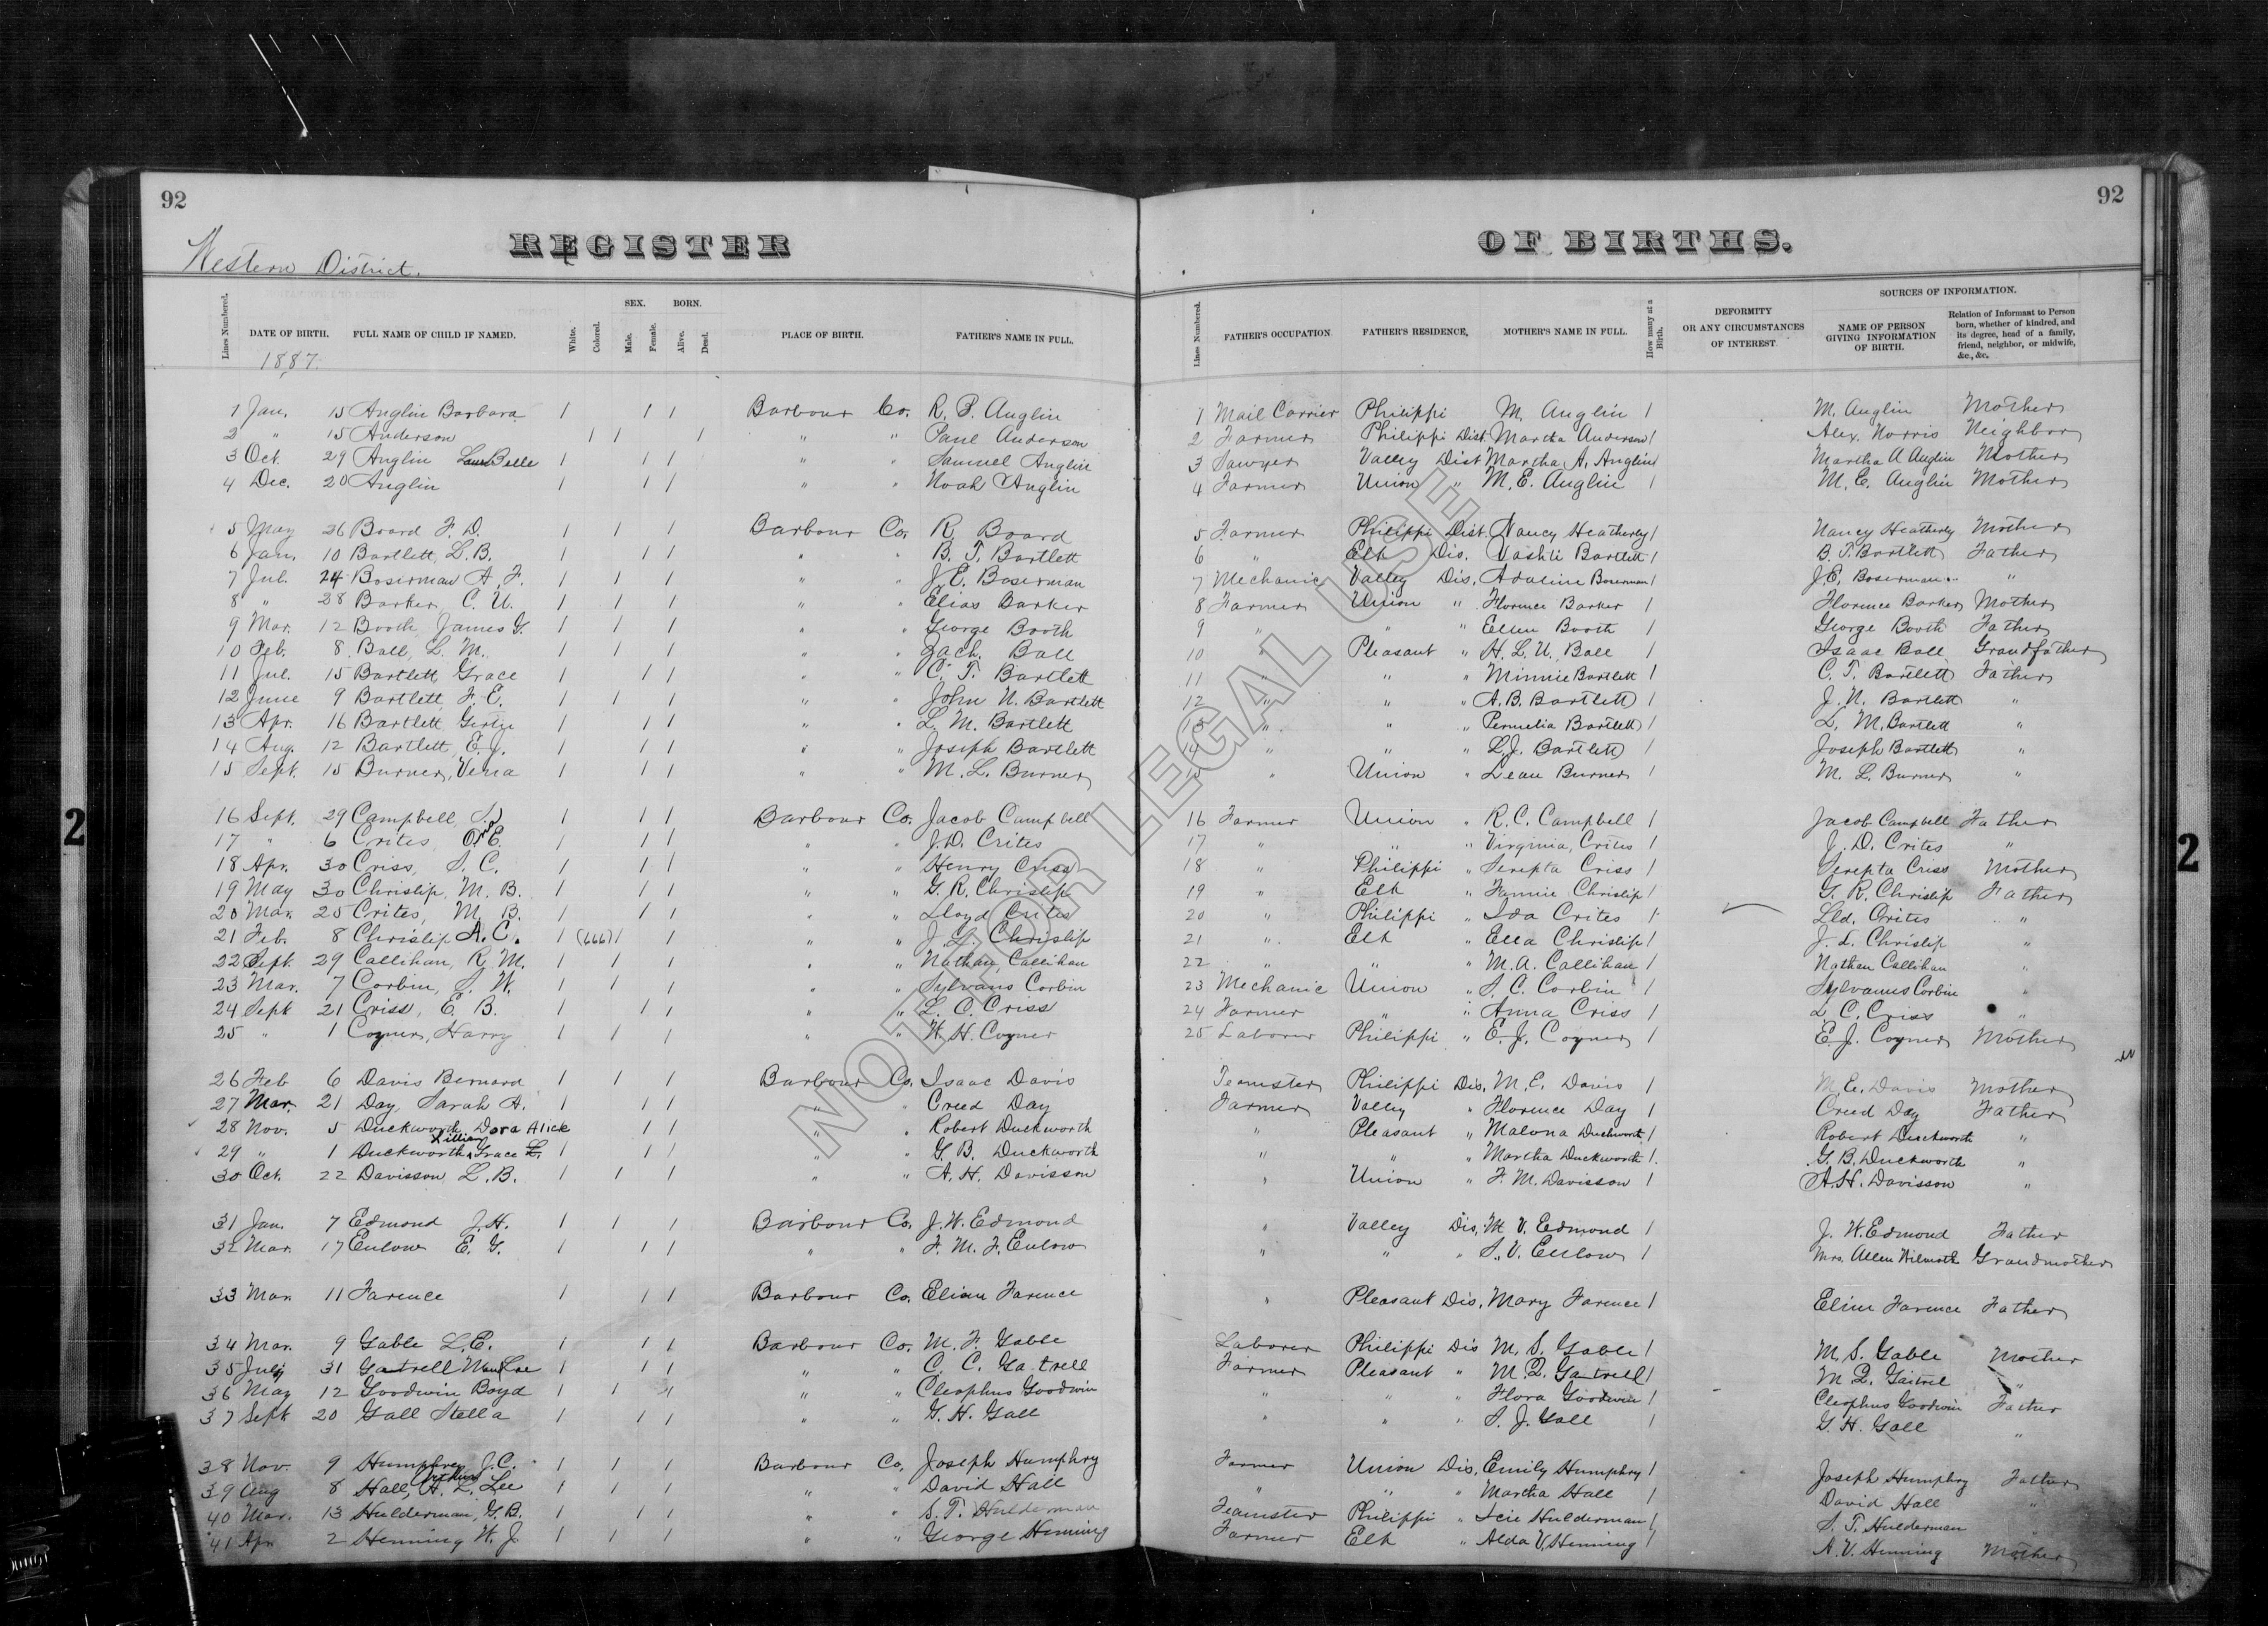 92
92
REGISTER
OF BIRTHS.
Western District.
Lines Numbered.
DATE OF BIRTH.
FULL NAME OF CHILD IF NAMED.
White.
Colored.
SEX.
Male.
Female.
BORN.
Alive.
Dead.
PLACE OF BIRTH.
FATHER'S NAME IN FULL.
1887.
1 Jan. 15 Anglin Barbara 1 1 1 Barbour Co. R. P. Anglin
2 " 15 Anderson 1 1 1 " " Paul Anderson
3 Oct. 29 Anglin Laura Belle 1 1 1 " " Samuel Anglin
4 Dec. 20 Anglin 1 1 1 " " Noah Anglin
5 May 26 Board F. D. 1 1 1 Barbour Co. R. Board
6 Jan. 10 Bartlett, L. B. 1 1 1 " " B. T. Bartlett
7 Jul. 24 Boserman A. F. 1 1 1 " " J. E. Boserman
8 " 28 Barker, C. U. 1 1 1 " " Elias Barker
9 Mar. 12 Booth, James G. 1 1 1 " " George Booth
10 Feb. 8 Ball, L. M. 1 1 1 " " Zach. Ball
11 Jul. 15 Bartlett Grace 1 1 1 " " C. T. Bartlett
12 June 9 Bartlett, F. E. 1 1 1 " " John N. Bartlett
13 Apr. 16 Bartlett 1 1 1 " " L. M. Bartlett
14 Aug. 12 Bartlett, E. J. 1 1 1 " " Joseph Bartlett
15 Sept. 15 Burner, Verna 1 1 1 " " M. L. Burner
16 Sept. 29 Campbell, 1 1 1 Barbour Co. Jacob Campbell
17 " 6 Crites, E. 1 1 1 " " J. D. Crites
18 Apr. 30 Criss, S. C. 1 1 1 " " Henry Criss
19 May 30 Chrislip, M. B. 1 1 1 " " G. R. Chrislip
20 Mar. 25 Crites, M. B. 1 1 1 " " Lloyd Crites
21 Feb. 8 Chrislip A. C. 1 (666) 1 1 " " J. L. Chrislip
22 Sept. 29 Callihan, R. M. 1 1 1 " " Nathan Callihan
23 Mar. 7 Corbin, S. W. 1 1 1 " " Sylvanus Corbin
24 Sept 21 Criss, E. B. 1 1 1 " " L. C. Criss
25 " 1 Coyner, Harry 1 1 1 " " W. H. Coyner
26 Feb 6 Davis Bernard 1 1 1 Barbour Co. Isaac Davis
27 Mar. 21 Day, Sarah A. 1 1 1 " " Creed Day
28 Nov. 5 Duckworth, Dora Alice 1 1 " " Robert Duckworth
Lillian
29 " 1 Duckworth, Grace L. 1 1 1 " " G. B. Duckworth
30 Oct. 22 Davisson L. B. 1 1 1 " " A. H. Davisson
31 Jan. 7 Edmond J. H. 1 1 1 Barbour Co. J. W. Edmond
32 Mar. 17 Enlow E. G. 1 1 1 " " F. M. F. Enlow
33 Mar. 11 Farence 1 1 1 Barbour Co. Farence
34 Mar. 9 Gable L. E. 1 1 1 Barbour Co. M. F. Gable
35 July 31 Gartrell 1 1 1 " " C. C. Gartrell
36 May 12 Goodwin Boyd 1 1 1 " " Cleophus Goodwin
37 Sept 20 Gall Stella 1 1 1 " " G. H. Gall
38 Nov. 9 Humphrey J. C. 1 1 1 Barbour Co. Joseph Humphry
Arthur
39 Aug 8 Hall, H. L. Lee 1 1 1 " " David Hall
40 Mar. 13 Hulderman, G. B. 1 1 1 " " S. T. Hulderman
41 Apr. 2 Henning W. J. 1 1 1 " " George Henning
Lines Numbered.
FATHER'S OCCUPATION.
FATHER'S RESIDENCE,
MOTHER'S NAME IN FULL.
How many at a Birth.
DEFORMITY
OR ANY CIRCUMSTANCES
OF INTEREST.
SOURCES OF INFORMATION.
NAME OF PERSON
GIVING INFORMATION
OF BIRTH.
Relation of Informant to Person
born, whether of kindred, and
its degree, head of a family,
friend, neighbor, or midwife,
&c., &c.
1 Mail Carrier Philippi M. Anglin 1 M. Anglin Mother
2 Farmer Philippi Dist. Martha Anderson 1 Alex. Norris Neighbor
3 Sawyer Valley Dist Martha A. Anglin 1 Martha A Anglin Mother
4 Farmer Union " M. E. Anglin 1 M. E. Anglin Mother
5 Farmer Philippi Dist. Nancy Heatherly 1 Nancy Heatherly Mother
6 " Elk Dis. Vashti Bartlett 1 B. T. Bartlett Father
7 Mechanic Valley Dis. Adaline Boserman 1 J. E. Boserman "
8 Farmer Union " Florence Barker 1 Florence Barker Mother
9 " " " Ellen Booth 1 George Booth Father
10 Pleasant " H. L. U. Ball 1 Isaac Ball Grandfather
11 " " " Minnie Bartlett 1 C. T. Bartlett Father
12 " " " A. B. Bartlett 1 J. N. Bartlett "
13 " " " Permelia Bartlett 1 L. M. Bartlett "
14 " " " L. J. Bartlett 1 Joseph Bartlett "
15 " Union " Leau Burner 1 M. L. Burner "
16 Farmer Union " R. C. Campbell 1 Jacob Campbell Father
17 " " " Virginia Crites 1 J. D. Crites "
18 " Philippi " Serepta Criss 1 Serepta Criss Mother
19 " Elk " Fannie Chrislip 1 G. R. Chrislip Father
20 " Philippi " Ida Crites 1 Lld. Crites "
21 " Elk " Ella Chrislip 1 J. L. Chrislip "
22 " " " M. A. Callihan 1 Nathan Callihan "
23 Mechanic Union " S. C. Corbin 1 Sylvanus Corbin "
24 Farmer " " Anna Criss 1 L. C. Criss "
25 Laborer Philippi " E. J. Coyner 1 E. J. Coyner Mother
Teamster Philippi Dis. M. E. Davis 1 M. E. Davis Mother
Farmer Valley " Florence Day 1 Creed Day Father
" Pleasant " Malona Duckworth 1 Robert Duckworth "
" " " Martha Duckworth 1 G. B. Duckworth "
" Union " F. M. Davisson 1 A. H. Davisson "
" Valley Dis. M. V. Edmond 1 J. W. Edmond Father
" " " S. V. Enlow 1 Mrs. Allen Wilmoth Grandmother
" Pleasant Dis. Mary Farence 1 Farence Father
Laborer Philippi Dis M. S. Gable 1 M. S. Gable Mother
Farmer Pleasant " M. Q. Gartrell 1 M Q. Gaitrel "
" " " Flora Goodwin 1 Cleophus Goodwin Father
" " " S. J. Gall 1 G. H. Gall "
Farmer Union Dis. Emily Humphry 1 Joseph Humphry Father
" " " Martha Hall 1 David Hall "
Teamster Philippi " Icie Hulderman 1 S. T. Hulderman "
Farmer Elk " Alda V. Henning 1 A. V. Henning Mother
2
2
NOT FOR LEGAL USE